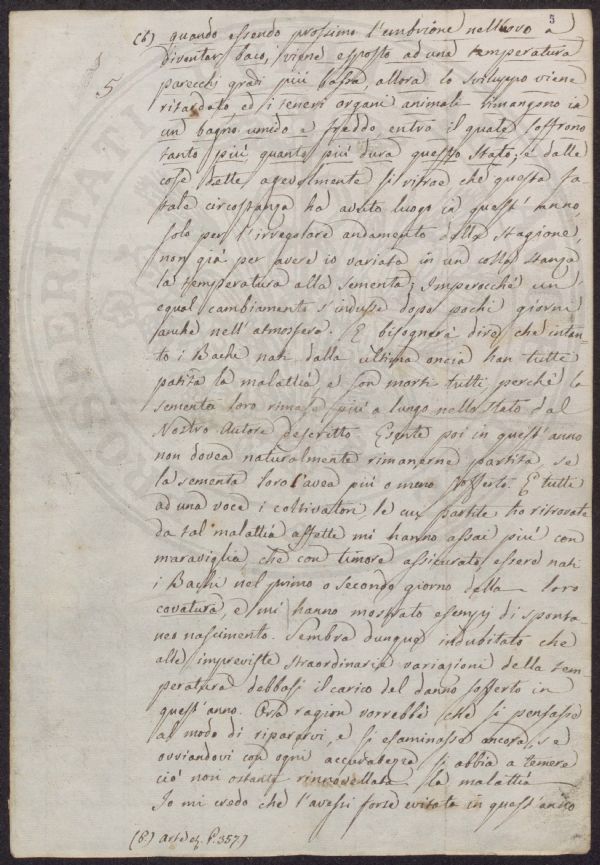 5
(6) quando essendo prossimo l'embrione nell'ovo a
5
diventar baco, viene esposto ad una temperatura
parecchi gradi più bassa, allora lo sviluppo viene
ritardato ed i teneri organi animali rimangono in
un bagno umido e freddo entro il quale soffrono
tanto più quanto più dura questo stato; e dalle
cose dette agevolmente si ritrae che questa fa
tale circostanza ha avuto luogo in quest'anno,
solo per l'irregolare andamento della stagione,
non già per avere io variata in un colla stanza
la temperatura alla sementa; Imperocchè un
equal cambiamento s'indusse dopo pochi giorni
anche nell'atmosfera. E bisognerà dire che intan-
to i Bachi nati dalla ultima oncia han tutti
patita la malattia, e son morti tutti perchè la
sementa loro rimase più a lungo nello stato dal
Nostro Autore descritto. Esente poi in quest'anno
non dovea naturalmente rimanerne partita, se
la sementa loro l'avea più o meno sofferto. E tutti
ad una voce i coltivatori, le cui partite ho ritrovate
da tal malattia affette mi hanno assai più con
maraviglia che con timore assicurato essere nati
i Bachi nel primo o secondo giorno della loro
covatura, e mi hanno mostrato esempj di sponta
neo nascimento. Sembra dunque indubitato che
alle impreviste straordinarie variazioni della tem
peratura debbasi il carico del danno sofferto in
quest'anno. Ora ragion vorrebbe che si pensasse
al modo di ripararvi, e si esaminasse ancora, se
ovviandovi con ogni accuratezza si abbia a temere
ciò non ostante rinnovellata la malattia.
Io mi credo che l'avessi forse evitata in quest'anno
(6.) Arte ec. P. 357.)
PROSPERITATI